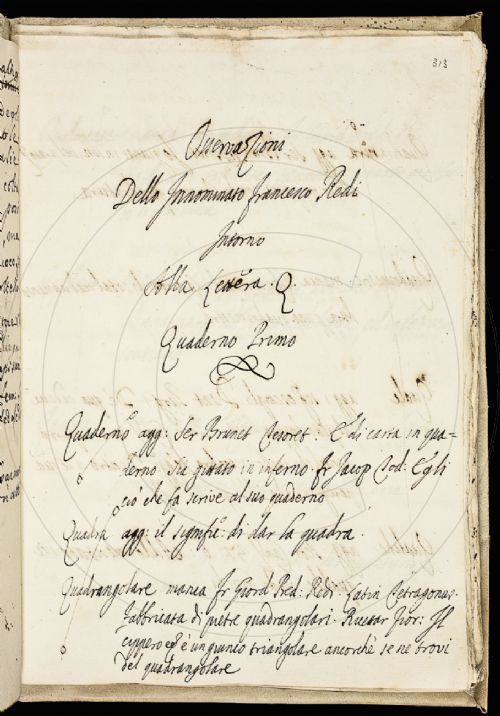 313
Osservazioni
Dello Innominato Francesco Redi
Intorno
Alla Lettera. Q.
Quaderno Primo
Quaderno agg: Ser Brunet Tesoret: E di carta in qua-
derno sia gittato in inferno. fr Jacop Tod: Egli
ciò che fa scrive al suo quaderno
Quadra agg: il signific. di dar la quadra.
Quadrangolare manca fr Giord: Pred: Redi. Latin Tetragonus.
Fabbricata di pietre quadrangolari. Ricettar fior: Il
cippero è un giunco triangolare ancorchè se ne trovi
del quadrangolare